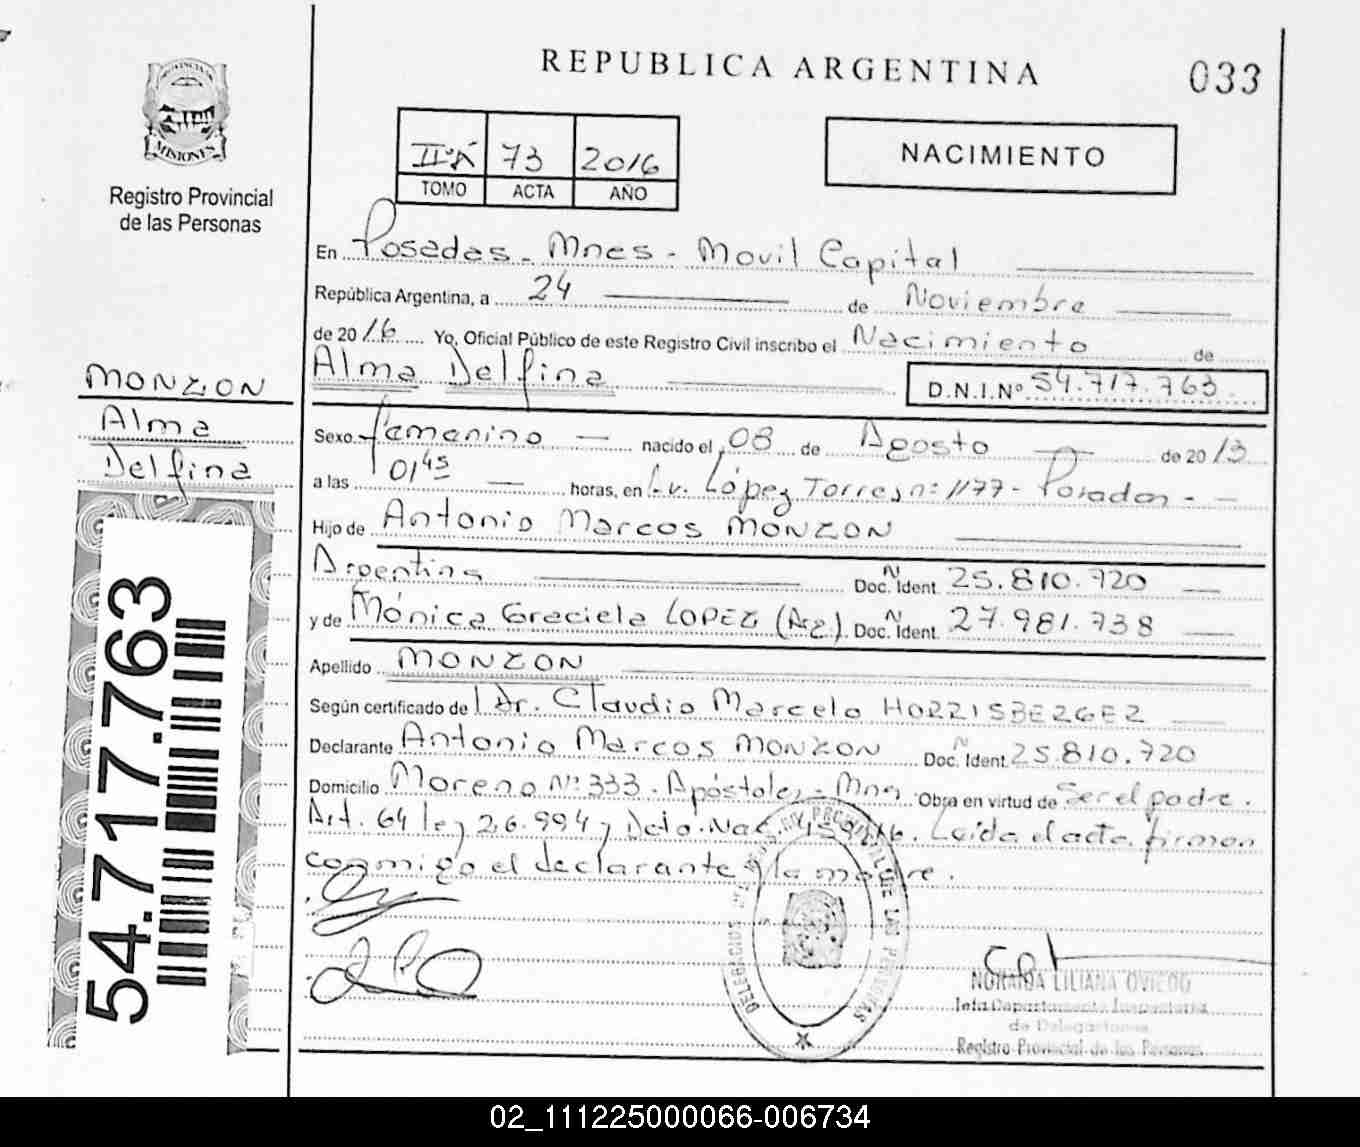 REPUBLICA ARGENTINA
033
PROVINCIA DE
MISIONES
Registro Provincial
de las Personas
73 2016
TOMO ACTA AÑO
NACIMIENTO
En Posadas - Mnes - Movil Capital
República Argentina, a 24 de Noviembre
de 2016 Yo, Oficial Público de este Registro Civil inscribo el Nacimiento de
Alma Delfina D.N.I.Nº 54.717.763
MONZON
Alma
Delfina
Sexo femenino nacido el 08 de Agosto de 2013
a las 01 45 horas, en Av. López Torres nº 1177 - Posadas -
Hijo de Antonio Marcos MONZON
Argentina Doc. Ident. 25.810.720
y de Mónica Graciela LOPEZ (Arg.) Doc. Ident. 27.981.738
Apellido MONZON
Según certificado de Dr. Claudio Marcelo HORRISBERGER
Declarante Antonio Marcos MONZON Doc. Ident. 25.810.720
Domicilio Moreno Nº 333 - Apóstoles - Mnes Obra en virtud de Ser el padre.
Art. 64 ley 26.994 y Dcto. Nac. Leída el acta, firman
conmigo el declarante y la madre.
54.717.763
NORAIDA LILIANA OVIEDO
Jefa Departamento Inspectoria
de Delegaciones
Registro Provincial de las Personas
02_111225000066-006734